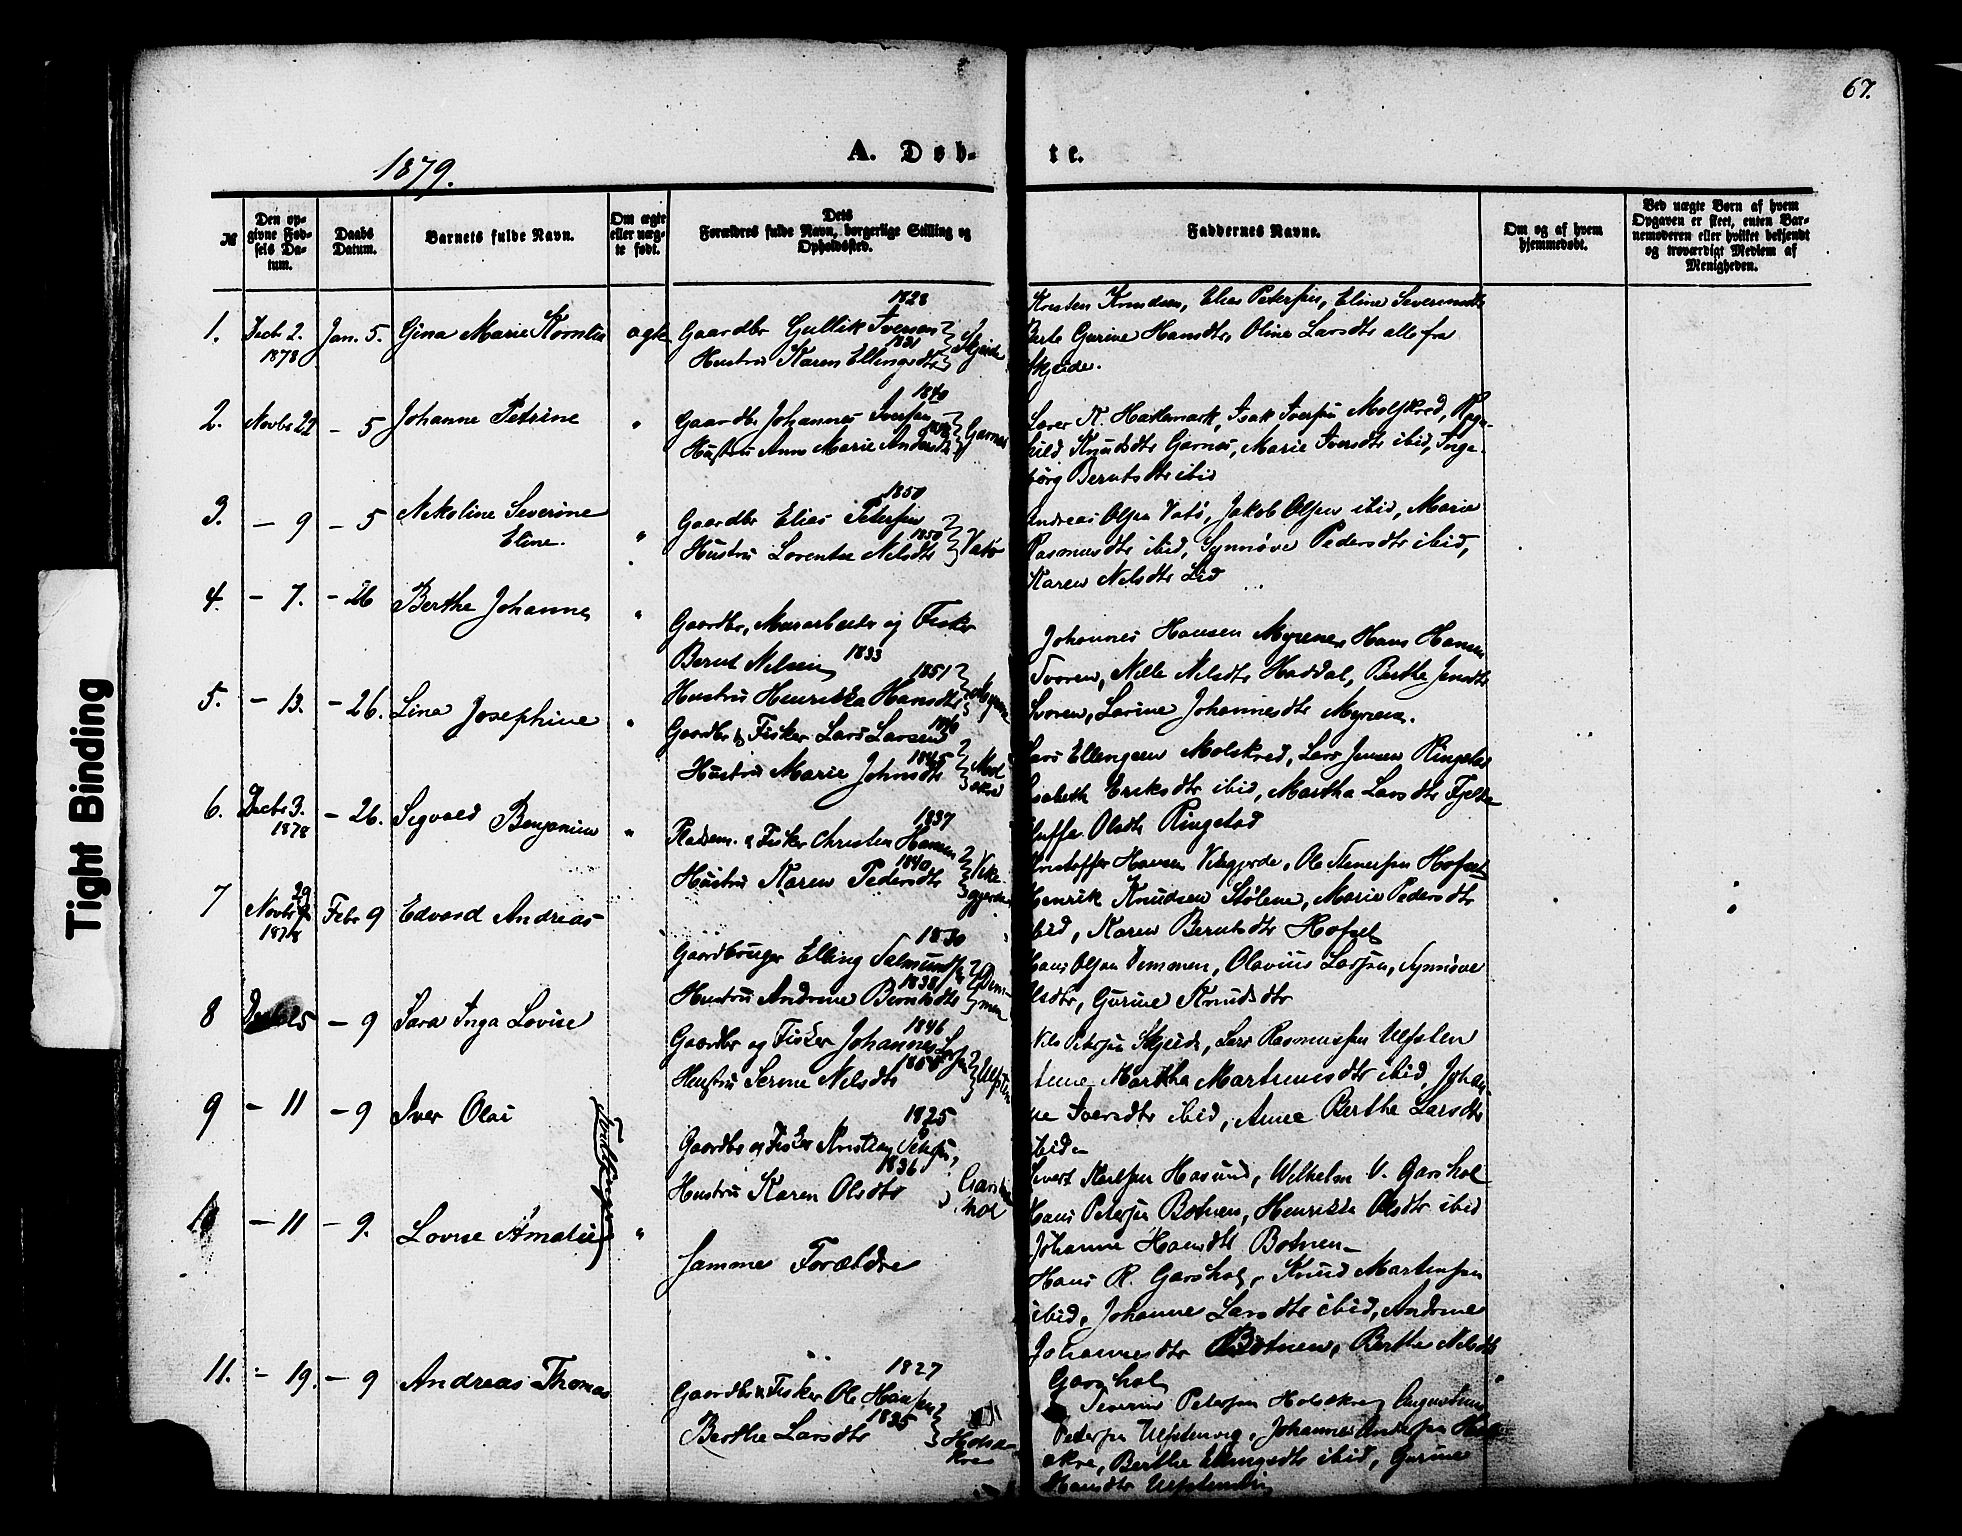 67.
1879.
A. Døb-
te.
№
Den op-
givne Fød-
sels Da-
tum.
Daabs
Datum.
Barnets fulde Navn.
Om ægte
eller uæg-
te født.
Dets
Forældres fulde Navn, borgerlige Stilling og
Opholdssted.
Faddernes Navne.
Om og af hvem
hjemmedøbt.
Ved uægte Børn af hvem
Opgaven er skeet, enten Bar-
nemoderen eller hvilket bekjendt
og troværdigt Medlem af
Menigheden.
1. Decb. 2.
1878
Jan. 5. Gina Marie
1828
Gaardbr Gullik Iversen
1831
Hustru Karen Ellingsdtr
Kristen Knudsen, Elias Petersen, Eline
Berte Gurine Hansdtr, Oline Larsdtr alle fra
Skjeide.
2. Novbr 22 - 5 Johanne Petrine "
1840
Gaardbr Johannes Iversen
Hustru Anne Marie
Garnes
Lærer K. Hatlemark, Isak Iversen Molskred, Rag-
hild Knudsdtr Garnes, Marie Iversdtr ibid, Inge-
borg Berntsdtr ibid
3. - 9 - 5 Nikoline Severine
Eline. "
1850
Gaardbr Elias Petersen
1850
Hustru Lorentse Nilsdtr
Vatø
Andreas Olsen Vatø, Jakob Olsen ibid, Marie
Rasmusdtr ibid, Synnøve Pedersdtr ibid,
Karen Nilsdtr Lid
4. - 7. - 26 Berthe Johanne "
Gaardbr, Murarbeider og Fisker
Bernt Nilsen 1833
1851
Hustru Henrikka Hansdtr
Johannes Hansen Myrene, Hans Hansen
Nille Nilsdtr Haddal, Berthe Jensdtr
Larine Johannesdtr Myrene.
5. - 13. - 26. Lina Josephine "
Gaardbr & Fisker Lars Larsen
1845
Hustru Marie
Lars Ellingsen Molskred, Lars Jensen Ringstad
Eriksdtr ibid, Martha Larsdtr
Olsdtr Ringstad
6. Decbr 3.
1878
- 26. Sigvald Benjamin "
1837
Pladsm. & Fisker Christen Hansen
1840
Hustru Karen Pedersdtr
Vike
gjerde
Kristoffer Hansen Vikegjerde, Ole
Henrik Knudsen Stølene, Marie Pedersdtr
ibid, Karen Berntsdtr Hofset
7 Novbr
29
1878
Febr 9 Edvard Andreas
1830
Gaardbruger Elling Salmundsen
1838
Hustru Andrine Berntsdtr
Dim-
men
Hans Olsen Dimmen, Olavius Larsen, Synnøve
Olsdtr, Gurine Knudsdtr
8 25 - 9 Sara Inga Lovise
1846
Gaardbr og Fisker Johannes
Hustru Serine Nilsdtr
Ulfsten
Nils Petersen Skjeide, Lars Rasmussen Ulfsten
Anne Martha Martinusdtr ibid, Johan
ne Iversdtr ibid, Anne Berthe Larsdtr
ibid-
9 - 11 - 9 Iver Olai
Tvillinger
1825
Gaardbr og Fisker Kristian
1836
Hustru Karen Olsdtr
Gars
hol
Sivert Hasund, Wilhelm V. Garshol
Hans Petersen Botnen, Henrikke Olsdtr ibid
Johanne Hansdtr Botnen-
10 - 11 - 9. Lovise Amalie "
Samme Forældre
Hans R. Garshol, Knud Martinsen
ibid, Johanne Larsdtr ibid, Andrine
Johannesdtr Botnen, Berthe Nilsdtr
Garshol
11. - 19. - 9 Andreas Thomas
1827
Gaardbr & Fisker Ole Hansen
1835
Berthe Larsdtr
Holsæ-
kre
Severine Petersen Holsekre,
Petersen Johannes Andersen Hols
ekre, Berthe Ellingsdtr ibid, Gurine
Hansdtr
Tight Binding